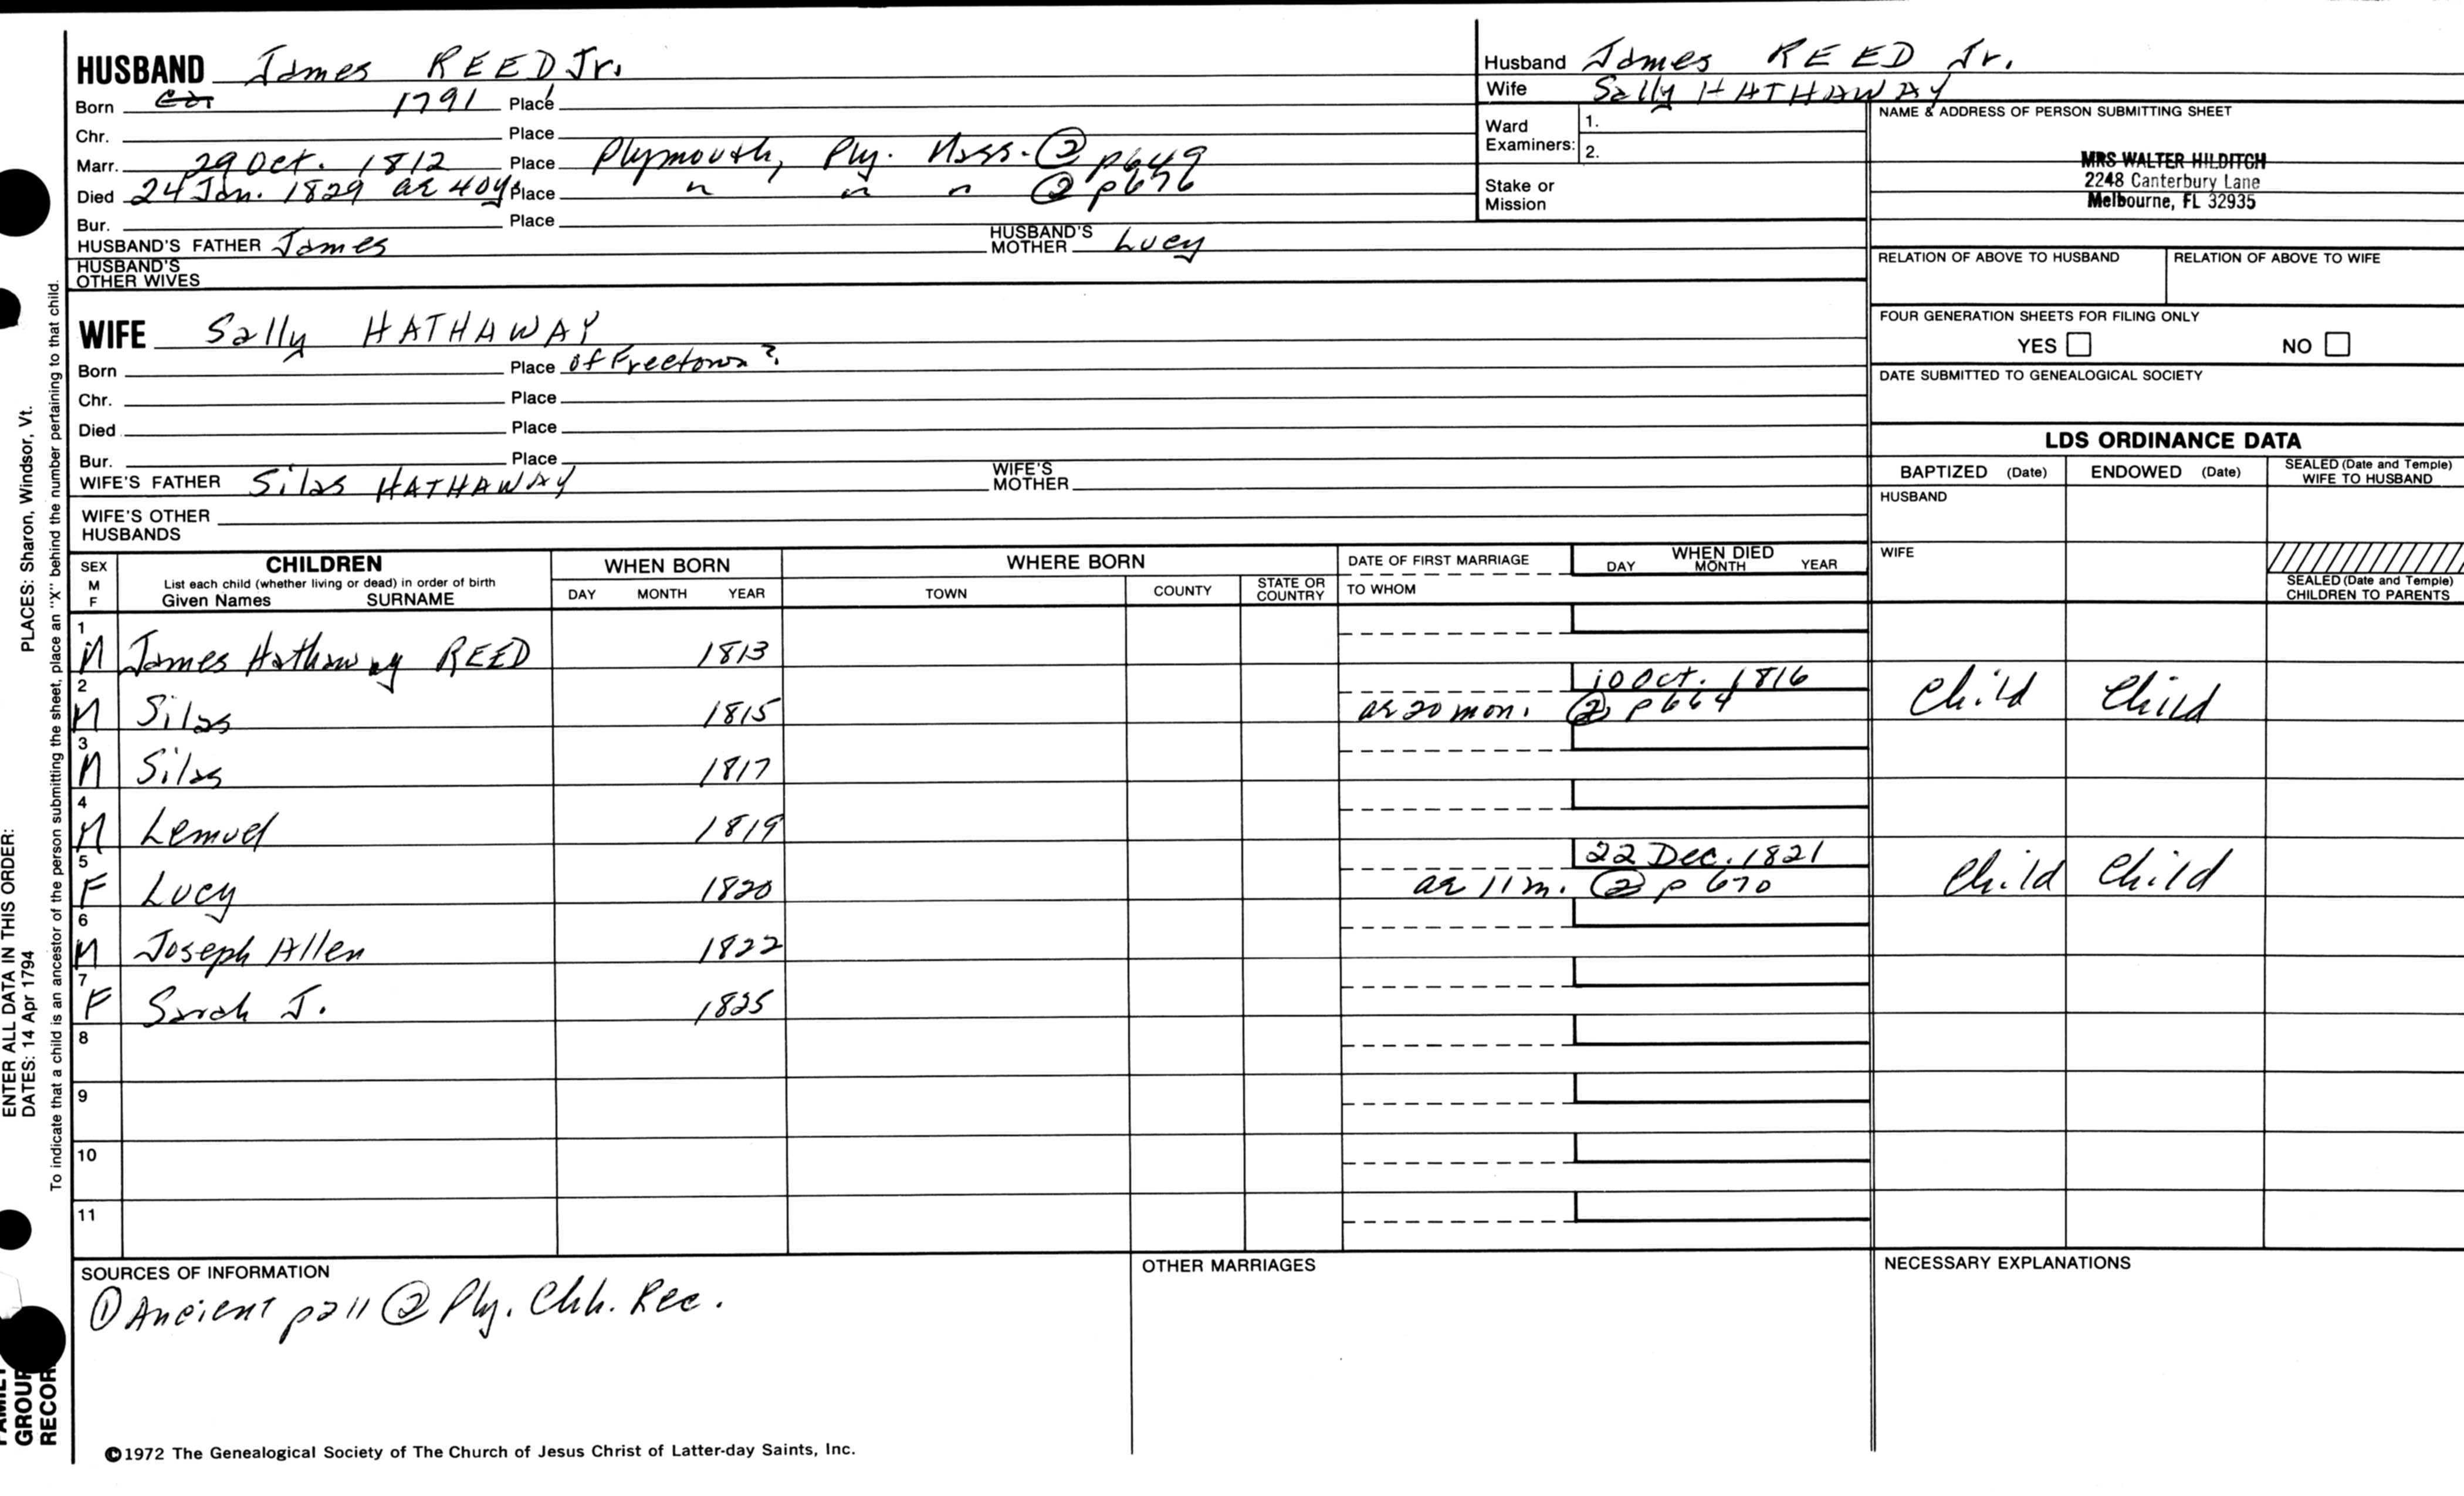 HUSBAND James REED Jr.
Born 1791 Place
Chr. Place
Marr. 29 Oct. 1812 Place Plymouth, Ply. Mass. ② p649
Died 24 Jan. 1829 ae 40ys Place " " " ② p676
Bur. Place
HUSBAND'S FATHER James HUSBAND'S MOTHER Lucy
HUSBAND'S OTHER WIVES
WIFE Sally HATHAWAY
Born Place of Freetown?
Chr. Place
Died Place
Bur. Place
WIFE'S FATHER Silas HATHAWAY WIFE'S MOTHER
WIFE'S OTHER HUSBANDS
Husband James REED Jr.
Wife Sally HATHAWAY
Ward Examiners: 1.
2.
Stake or Mission
NAME & ADDRESS OF PERSON SUBMITTING SHEET
MRS WALTER HILDITCH
2248 Canterbury Lane
Melbourne, FL 32935
RELATION OF ABOVE TO HUSBAND RELATION OF ABOVE TO WIFE
FOUR GENERATION SHEETS FOR FILING ONLY
YES NO
DATE SUBMITTED TO GENEALOGICAL SOCIETY
LDS ORDINANCE DATA
BAPTIZED (Date) ENDOWED (Date) SEALED (Date and Temple) WIFE TO HUSBAND
HUSBAND
WIFE
SEALED (Date and Temple) CHILDREN TO PARENTS
SEX M F CHILDREN WHEN BORN WHERE BORN DATE OF FIRST MARRIAGE WHEN DIED
List each child (whether living or dead) in order of birth
Given Names SURNAME DAY MONTH YEAR TOWN COUNTY STATE OR COUNTRY TO WHOM DAY MONTH YEAR
1 M James Hathaway REED 1813
2 10 Oct. 1816
M Silas 1815 ae 20 mon. ② p664 Child Child
3 M Silas 1817
4 M Lemuel 1819
5 22 Dec. 1821
F Lucy 1820 ae 11 m. ② p 670 Child Child
6 M Joseph Allen 1822
7 F Sarah J. 1825
8
9
10
11
SOURCES OF INFORMATION
① Ancient p211 ② Ply. Chh. Rec.
OTHER MARRIAGES
NECESSARY EXPLANATIONS
©1972 The Genealogical Society of The Church of Jesus Christ of Latter-day Saints, Inc.
ENTER ALL DATA IN THIS ORDER:
DATES: 14 Apr 1794 PLACES: Sharon, Windsor, Vt.
To indicate that a child is an ancestor of the person submitting the sheet, place an "X" behind the number pertaining to that child.
FAMILY
GROUP
RECOR